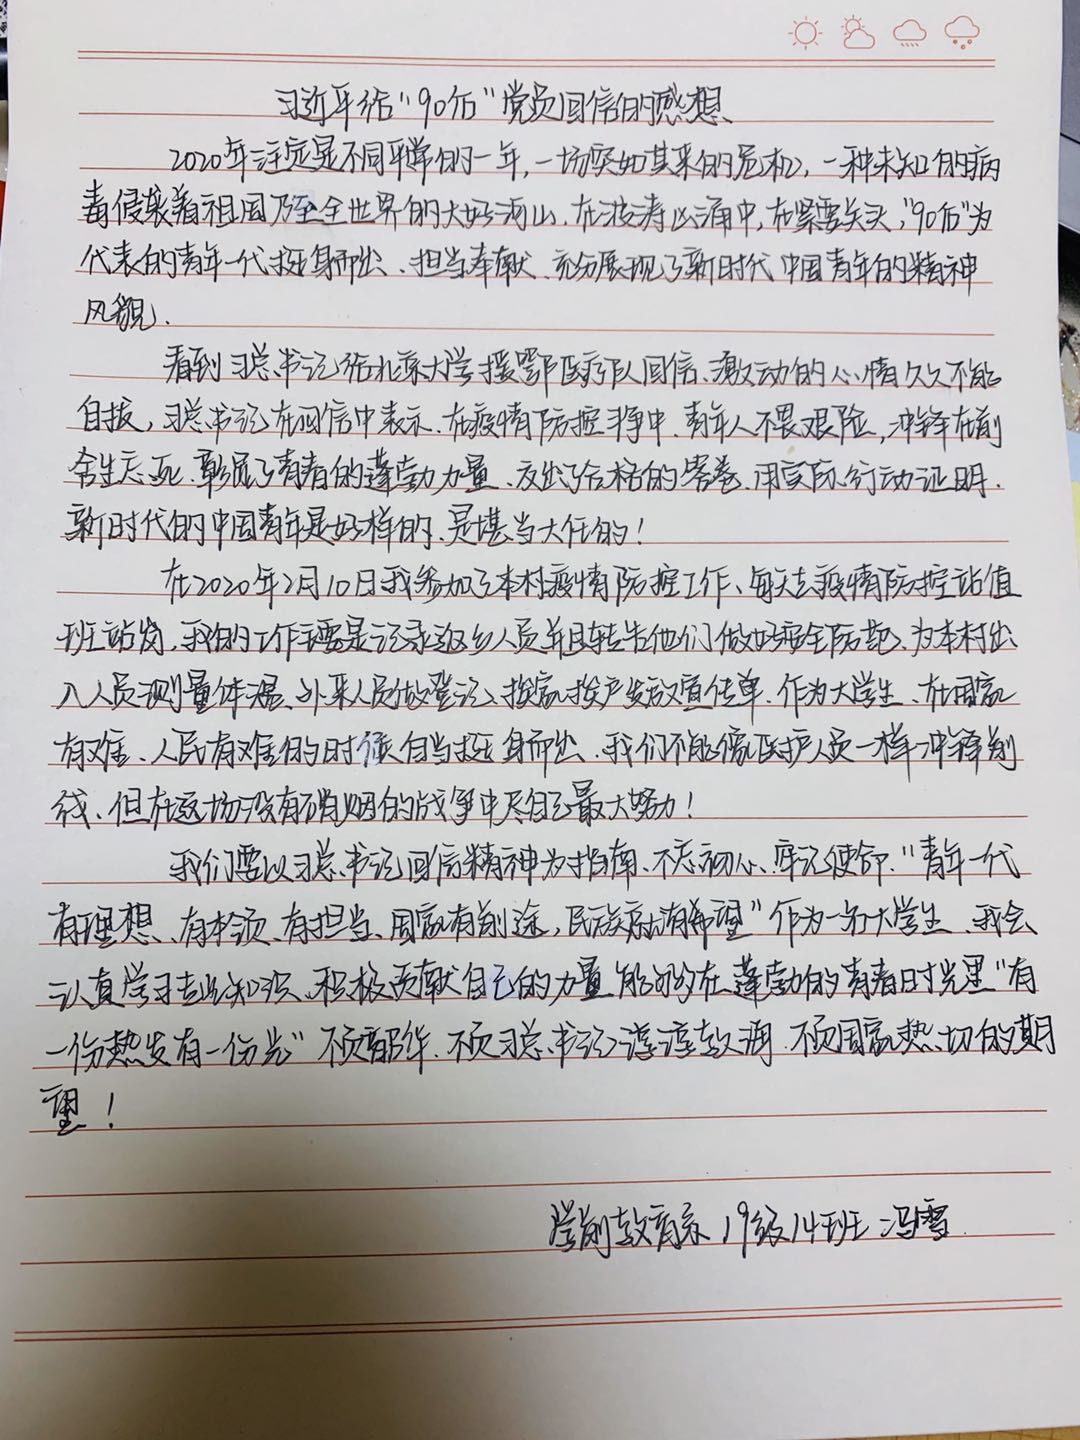 习近平给“90后”党员回信的感想
2020年注定是不同平常的一年，一场突如其来的危机，一种未知的病
毒侵袭着祖国乃至全世界的大好河山、在波涛汹涌中，在紧要关头，“90后”为
代表的青年一代挺身而出、担当奉献、充分展现了新时代中国青年的精神
风貌.
看到习总书记给北京大学援鄂医疗队回信、激动的心情久久不能
自拔，习总书记在回信中表示、在疫情防控斗争中、青年人不畏艰险，冲锋在前
舍生忘死、彰显了青春的蓬勃力量、交出了合格的答卷、用实际行动证明、
新时代的中国青年是好样的、是堪当大任的！
在2020年2月10日我参加了本村疫情防控工作、每天去疫情防控站值
班站岗，我的工作主要是记录返乡人员并且转告他们做好安全防范、为本村出
入人员测量体温、外来人员做好登记、挨家挨户发放宣传单、作为大学生、在国家
有难、人民有难的时候自当挺身而出、我们不能像医护人员一样冲锋前
线、但在这场没有硝烟的战争中尽自己最大努力！
我们要以习总书记回信精神为指南、不忘初心、牢记使命、“青年一代
有理想、有本领、有担当、国家有前途，民族就有希望”作为一名大学生、我会
认真学习专业知识、积极贡献自己的力量、能够在蓬勃的青春时光里“有
一份热发有一份光”不负韶华、不负习总书记谆谆教诲、不负国家热切的期
望！
学前教育系 19级14班 冯雪